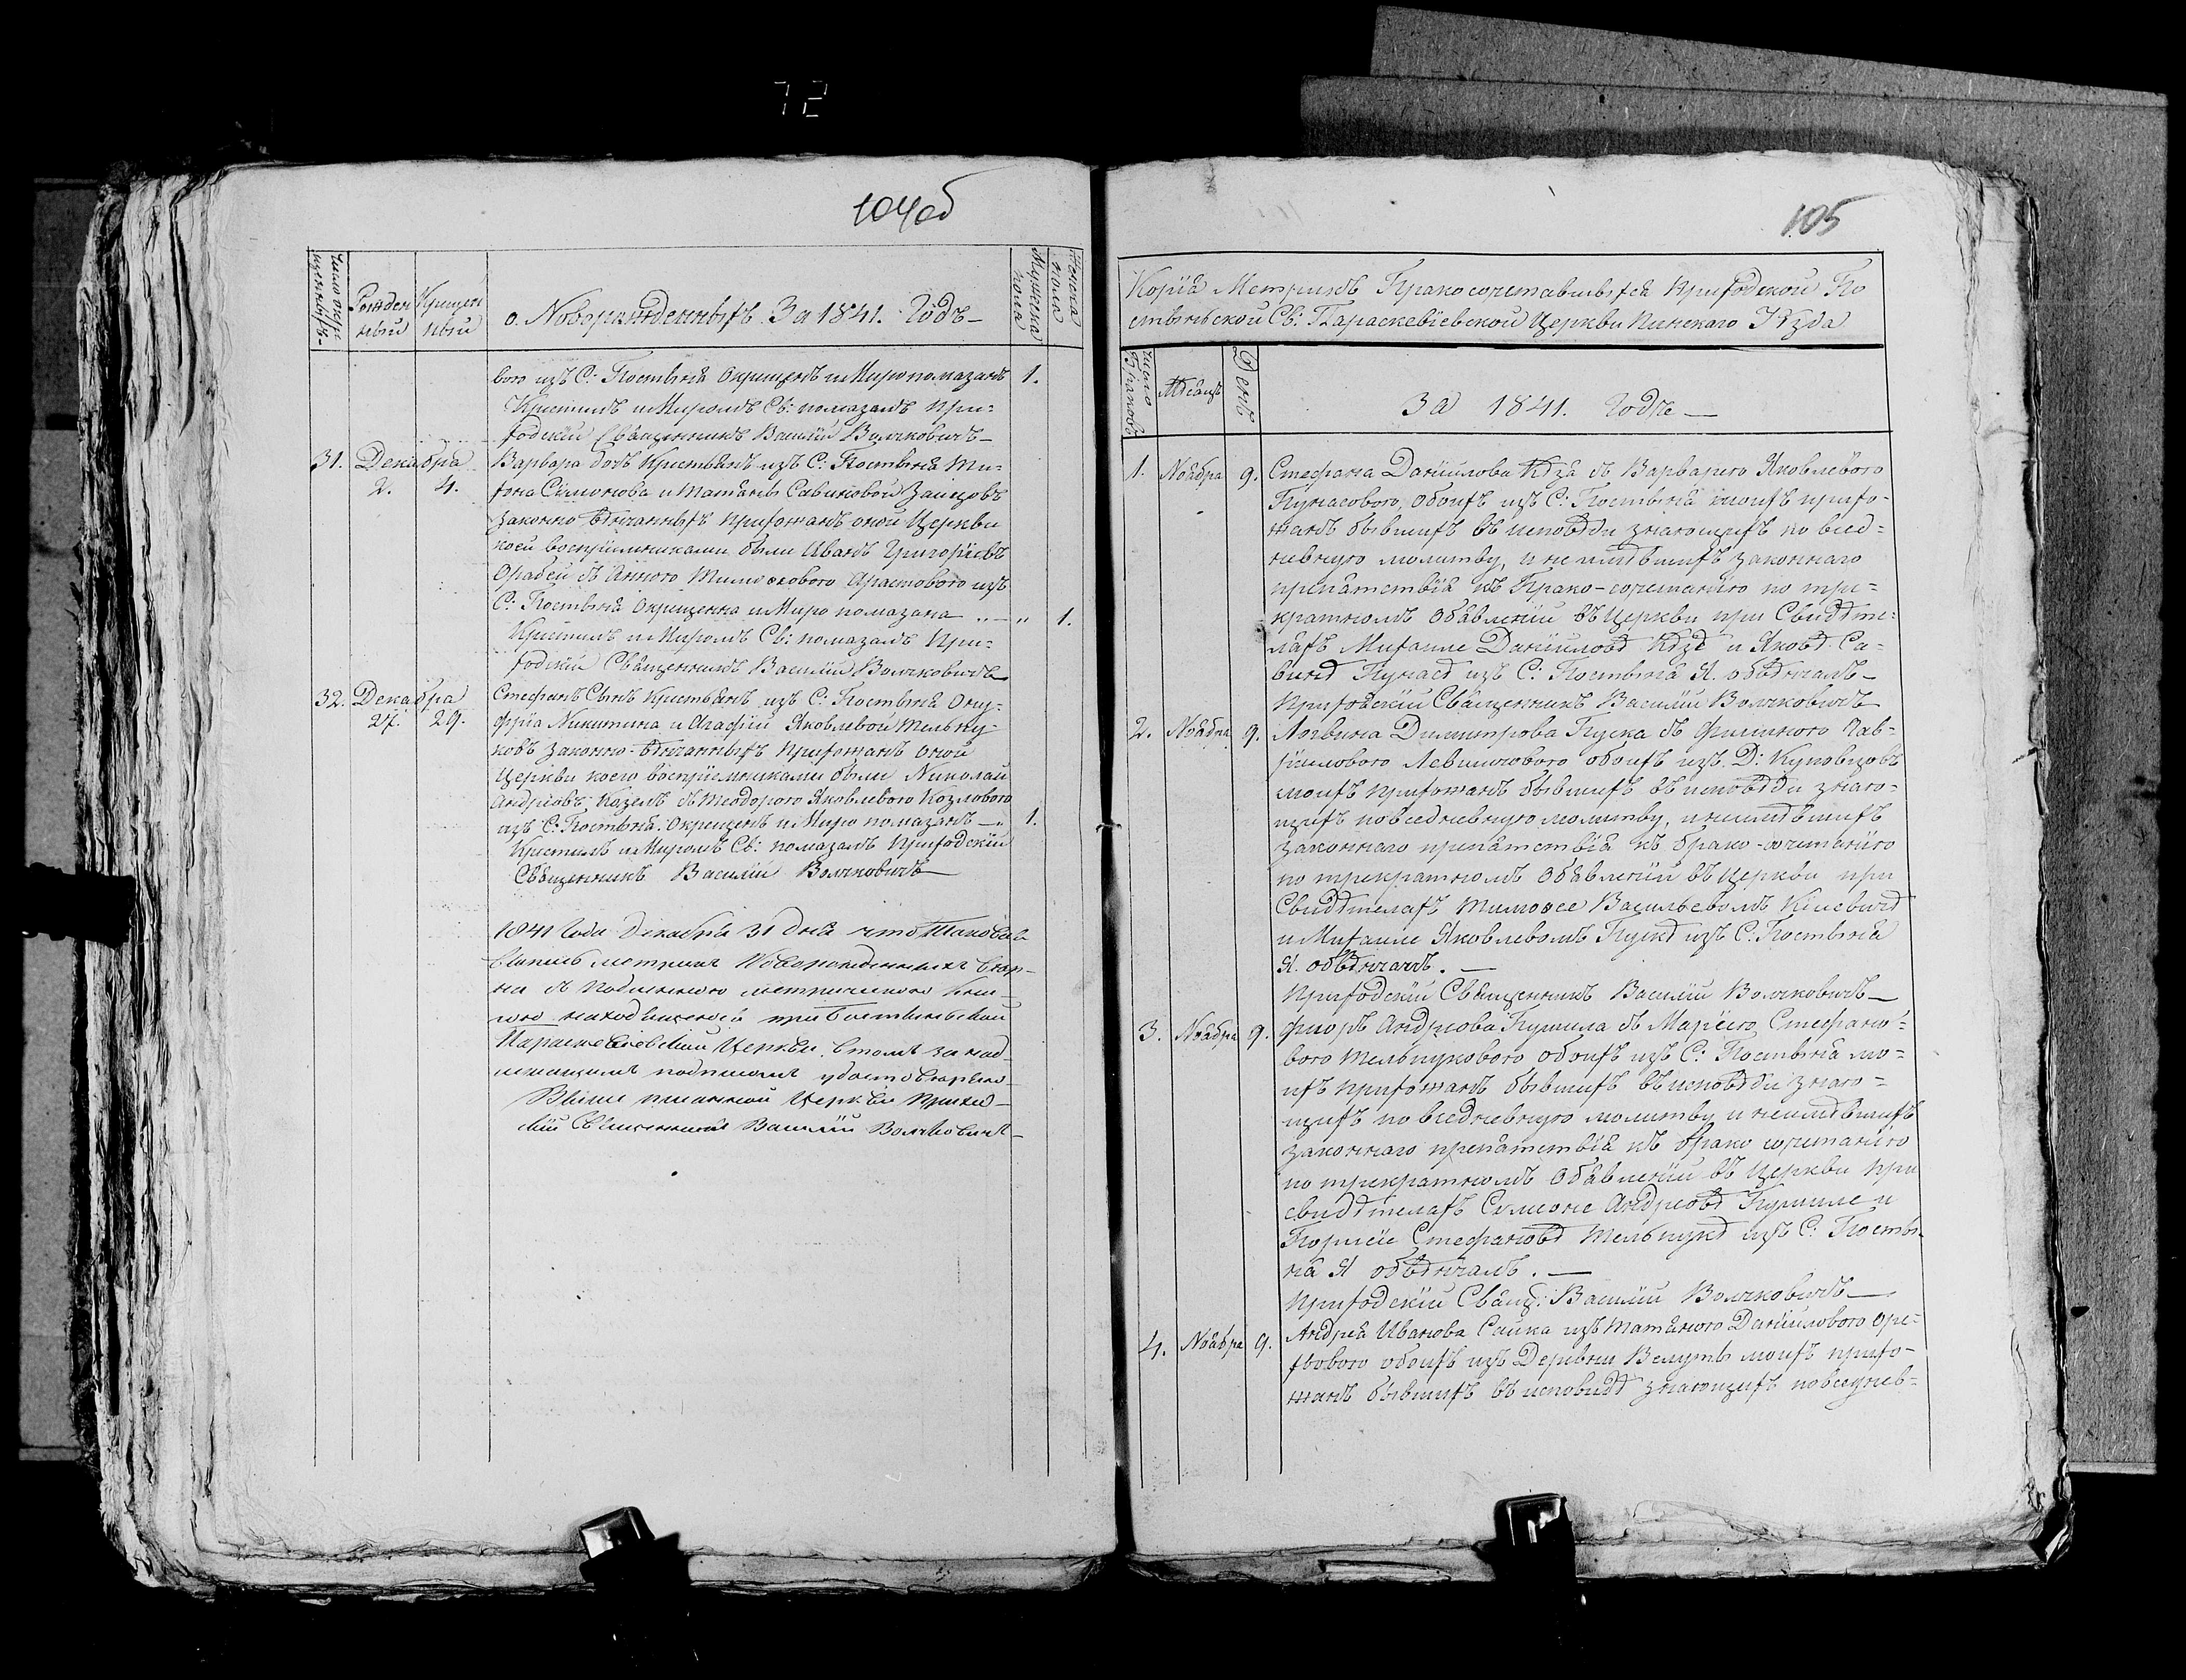 72
104об
Число окре
щенныхъ
Рожден
ный
Крещен
ный
о Новорожденныхъ За 1841. Годъ
Мужеска
пола
Женска
пола
вого изъ С: Постыня Окрещенъ и Миропомазанъ 1.
Крестилъ и Мѵромъ Св: помазалъ При=
ходскій Священникъ Василій Волчковичъ
31. Декабря
2. 4.
Варвара дочь Крестьянъ изъ С: Постыня Ми=
хона Симонова и Татьяны Савиновой Заицовъ
законно вѣнчанныхъ прихожанъ оной Церкви
коей воспріемниками были Иванъ Григоріевъ
Орабей съ Анною Тимоѳеевою изъ
С: Постыня Окрещенна и Миро помазана „ — „ 1.
Крестилъ и Мѵромъ Св: помазалъ При=
ходскій Священникъ Василій Волчковичъ
32. Декабря
27. 29.
Стефанъ Сынъ Крестьянъ изъ С: Постыня Ону=
фрія Никитина и Агафіи Яковлевой Мельну=
ковъ законно-вѣнчанныхъ Прихожанъ Оной
Церкви коего воспріемниками были Николай
Андреевъ Козелъ съ Теодорою Яковлевою Козловою
изъ С: Постыня. Окрещенъ и Миро помазанъ — „ 1.
Крестилъ и Мѵромъ Св: помазалъ Приходскій
Священникъ Василій Волчковичъ
1841 Года Декабря 31 дня что Таковая
выпись метрикъ Новорожденныхъ вѣр-
на съ Подлинною метрическою Кни-
гою находящеюся при Постыньской
Параскевіевской Церкви, въ томъ за над-
лежащимъ подписомъ удостовѣряю
Выше писанной Церкви Приход-
скій Священникъ Василій Волчковичъ
105
Копія Метрикъ Бракосочетавшихся Приходской По
стыньской Св: Параскевіевской Церкви Пинскаго Уѣзда
Число
Браковъ
Мѣсяцъ
День
За 1841. Годъ —
1. Ноября 9. Стефана Даниилова Кдзя съ Варварою Яковлевою
Кунасовою, обоихъ изъ С: Постыня моихъ прихо-
жанъ бывшихъ въ исповѣди знающихъ по всед=
невную молитву, и не имѣвшихъ законнаго
препятствія къ Брако-сочетанію по трі=
кратномъ Обявленіи въ Церкви при Свидѣте=
ляхъ Михаиле Данииловѣ Кдзѣ и Яковѣ Са-
винѣ Кунасѣ изъ С: Постыня Я. обвѣнчалъ —
Приходскій Священникъ Василій Волчковичъ
2. Ноября 9. Логвина Димитрова Пуска съ Фимиею Гав-
ріиловою Левшовою обоихъ изъ Д: Куповцовъ
моихъ прихожанъ бывшихъ въ исповѣди знаю=
щихъ повседневную молитву, и неимѣвшихъ
законнаго препятствія къ брако-сочетанію
по трикратномъ Обявленіи въ Церкви при
Свидѣтеляхъ Тимоѳее Васильевомъ
и Михаиле Яковлевомъ Пускѣ изъ С: Постыня
Я. обвѣнчалъ. —
Приходскій Священникъ Василій Волчковичъ —
3. Ноября 9. Андреова съ Маріею, Стефано=
вою Мельнуковою обоихъ изъ С: Постыня мо=
ихъ прихожанъ бывшихъ въ исповѣди знаю=
щихъ по вседневную молитву и неимѣвшихъ
законнаго препятствія къ брако сочетанію
по трикратномъ Обявленіи въ Церкви при
свидѣтеляхъ Симоне Андреовѣ и
Стефановѣ Мельнукѣ изъ С: Посты
ня Я обвѣнчалъ. —
Приходскій Свящ: Василій Волчковичъ —
4. Ноября 9. Андрея Иванова Сайка изъ Татьяною Данииловою Оре=
ховою обоихъ изъ Деревни Велуть моихъ прихо-
жанъ бывшихъ въ исповидѣ знающихъ повседнев=